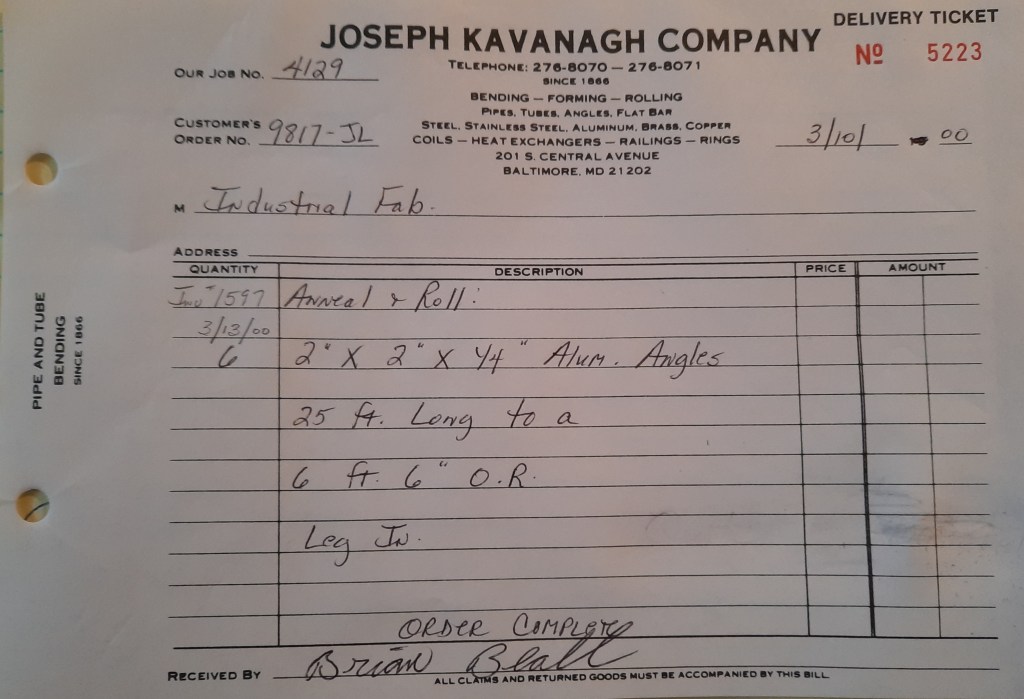 DELIVERY TICKET
JOSEPH KAVANAGH COMPANY
Nº 5223
TELEPHONE: 276-8070 — 276-8071
SINCE 1866
OUR JOB NO. 4129
BENDING — FORMING — ROLLING
PIPES, TUBES, ANGLES, FLAT BAR
STEEL, STAINLESS STEEL, ALUMINUM, BRASS, COPPER
COILS — HEAT EXCHANGERS — RAILINGS — RINGS
201 S. CENTRAL AVENUE
BALTIMORE, MD 21202
CUSTOMER'S
ORDER NO. 9817-JL
3/10/ 00
M Industrial Fab.
ADDRESS
QUANTITY DESCRIPTION PRICE AMOUNT
Inv # 1597 Anneal & Roll:
3/13/00
6 2" X 2" X 1/4" Alum. Angles
25 ft. Long to a
6 ft. 6" O.R.
Leg In.
ORDER COMPLETE
RECEIVED BY Brian Beall
ALL CLAIMS AND RETURNED GOODS MUST BE ACCOMPANIED BY THIS BILL
PIPE AND TUBE
BENDING
SINCE 1866